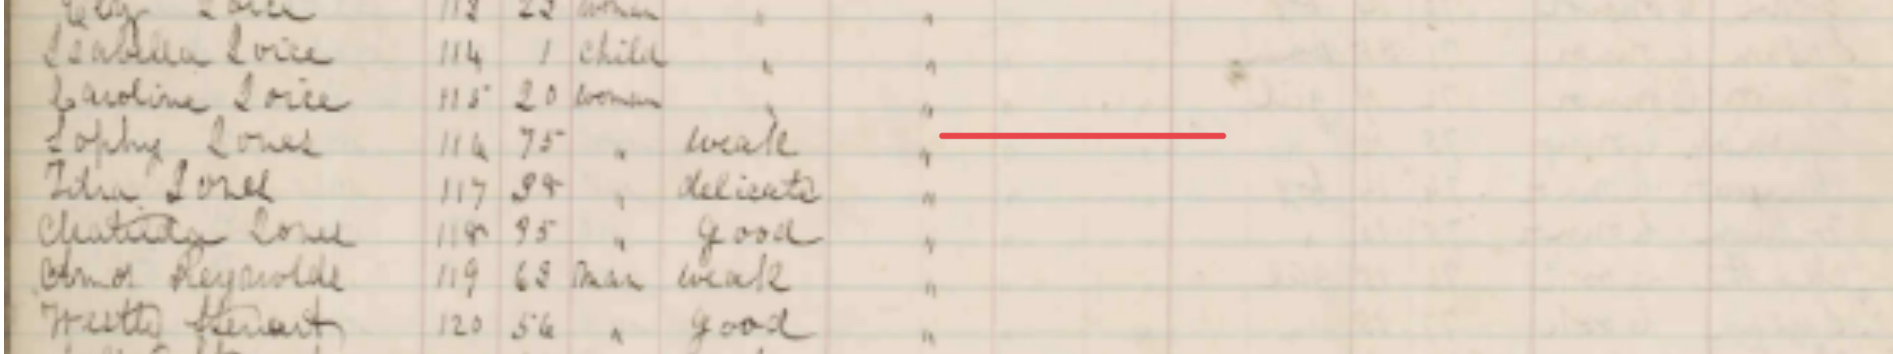 113 22 woman "
Isabella Loice 114 1 child " "
Caroline Loice 115 20 woman " "
Sophy Lones 116 75 " weak "
117 38 " delicate "
Lones 118 35 " good "
Amos Reynolds 119 63 man weak "
Stewart 120 56 " good "